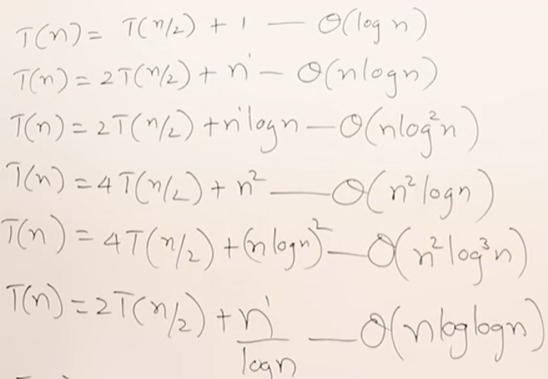 T(n) = T(n/2) + 1 — O(log n)
T(n) = 2T(n/2) + n — O(n log n)
T(n) = 2T(n/2) + n log n — O(n log²n)
T(n) = 4T(n/2) + n² — O(n² log n)
T(n) = 4T(n/2) + (n log n)² — O(n² log³n)
T(n) = 2T(n/2) + n¹/log n — O(n log log n)